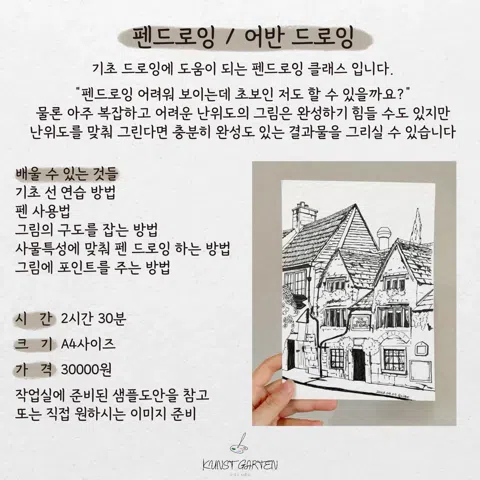 펜드로잉 / 어반 드로잉
기초 드로잉에 도움이 되는 펜드로잉 클래스 입니다.
"펜드로잉 어려워 보이는데 초보인 저도 할 수 있을까요?"
물론 아주 복잡하고 어려운 난위도의 그림은 완성하기 힘들 수도 있지만
난위도를 맞춰 그린다면 충분히 완성도 있는 결과물을 그리실 수 있습니다
배울 수 있는 것들
기초 선 연습 방법
펜 사용법
그림의 구도를 잡는 방법
사물특성에 맞춰 펜 드로잉 하는 방법
그림에 포인트를 주는 방법
시 간 2시간 30분
크 기 A4사이즈
가 격 30000원
작업실에 준비된 샘플도안을 참고
또는 직접 원하시는 이미지 준비
KUNST GARTEN